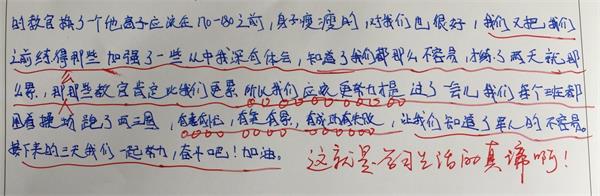 的教官换了个他高子应该在170-180之前,身子瘦瘦的,对我们也很好,我们又把我们
之前练得那些 加强了一些从中我深有体会,知道了我们都那么不容易,才练了两天就那
么累,那那些教官肯定比我们更累 所以我们应该更努力才是 过了一会儿我们每个班都
围着操场跑了两三圈,有素有,有笑有累,有成功有失败,让我们知道了军人的不容易。
接下来的三天我们一起努力,奋斗吧!加油。
这就是学习生活的真谛啊!